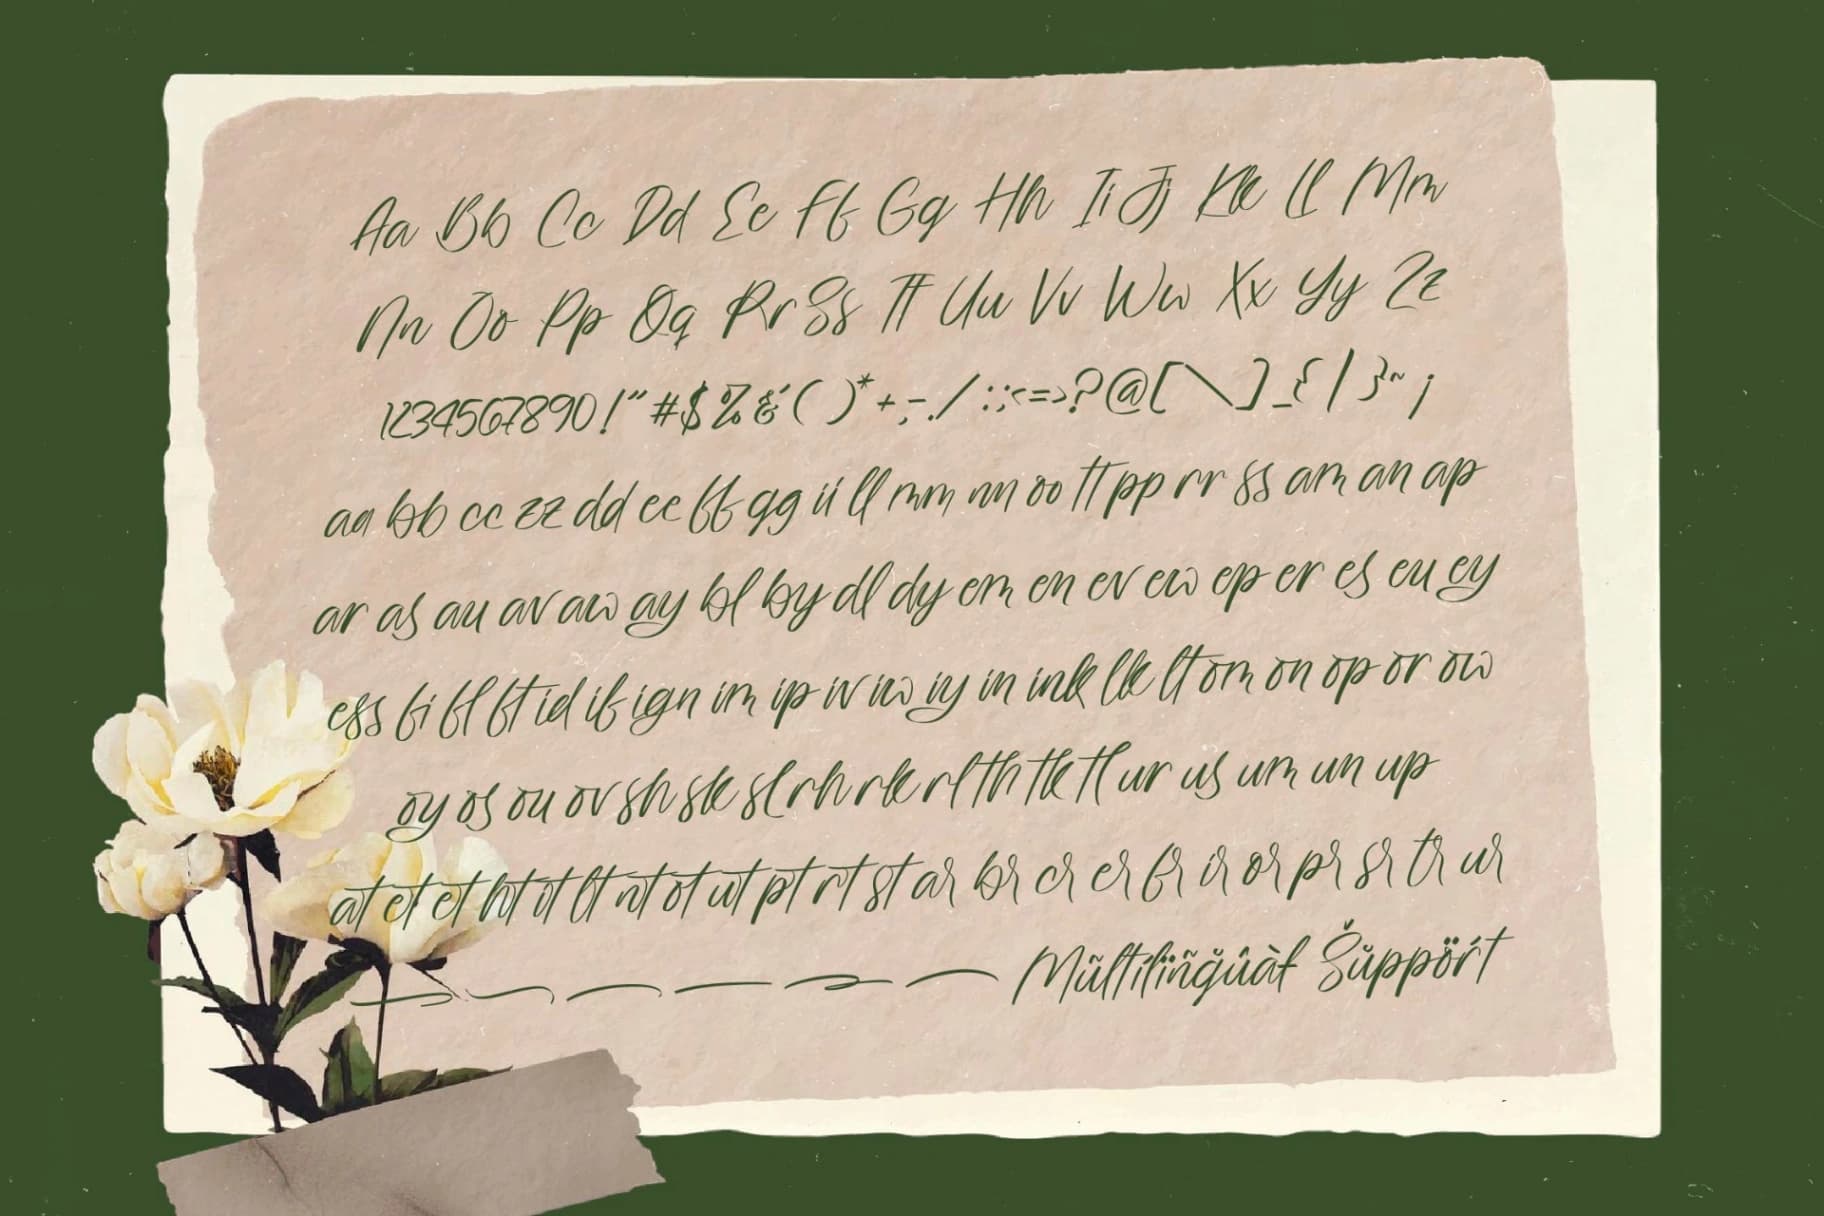 Aa Bb Cc Dd Ee Ff Gg Hh Ii Jj Kk Ll Mm
Nn Oo Pp Qq Rr Ss Tt Uu Vv Ww Xx Yy Zz
1234567890!"#$%&'()*+,-./:;<=>?@[\]_{|}~¡
aa bb cc zz dd ee ff gg ii ll mm nn oo tt pp rr ss am an ap
ar as au av aw ay bl by dl dy em en ev ew ep er es eu ey
ess fi fl ft id if ign im ip iv iw iy in ink lk lt om on op or ow
oy os ou ov sh sk sl rh rk rl th tk tl ur us um un up
at et et ht it lt nt ot ut pt rt st ar br cr er fr ir or pr sr tr ur